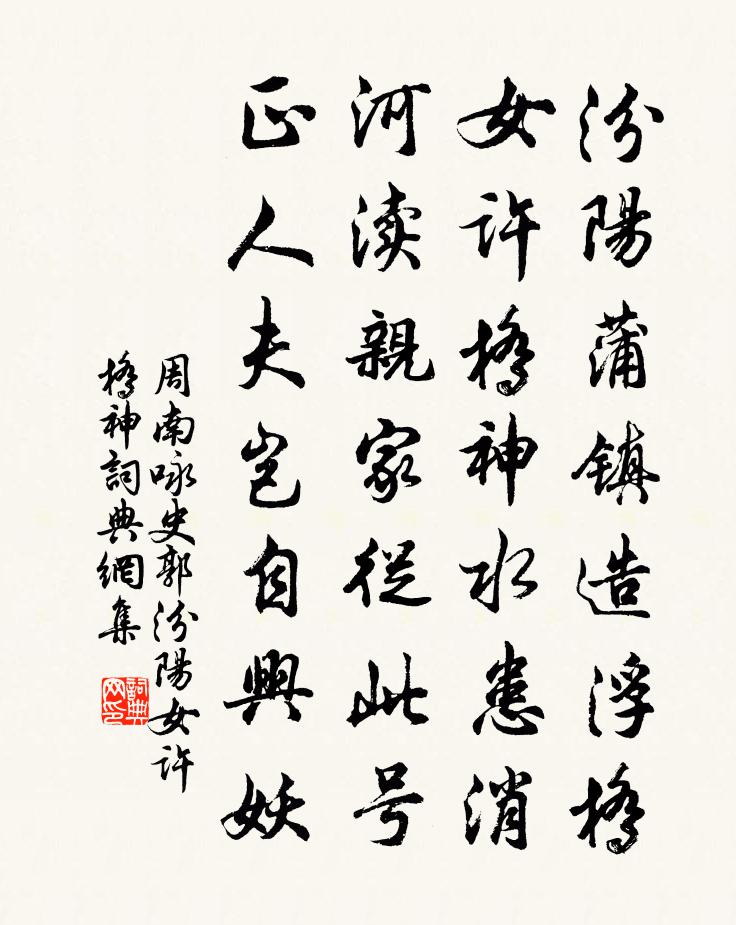 汾陽蒲鎮造浮橋
女許橋神水患消
河渎親家從此号
正人夫岂自興妖
周南咏史郭汾陽女許
橋神詞典網集
詞典网印